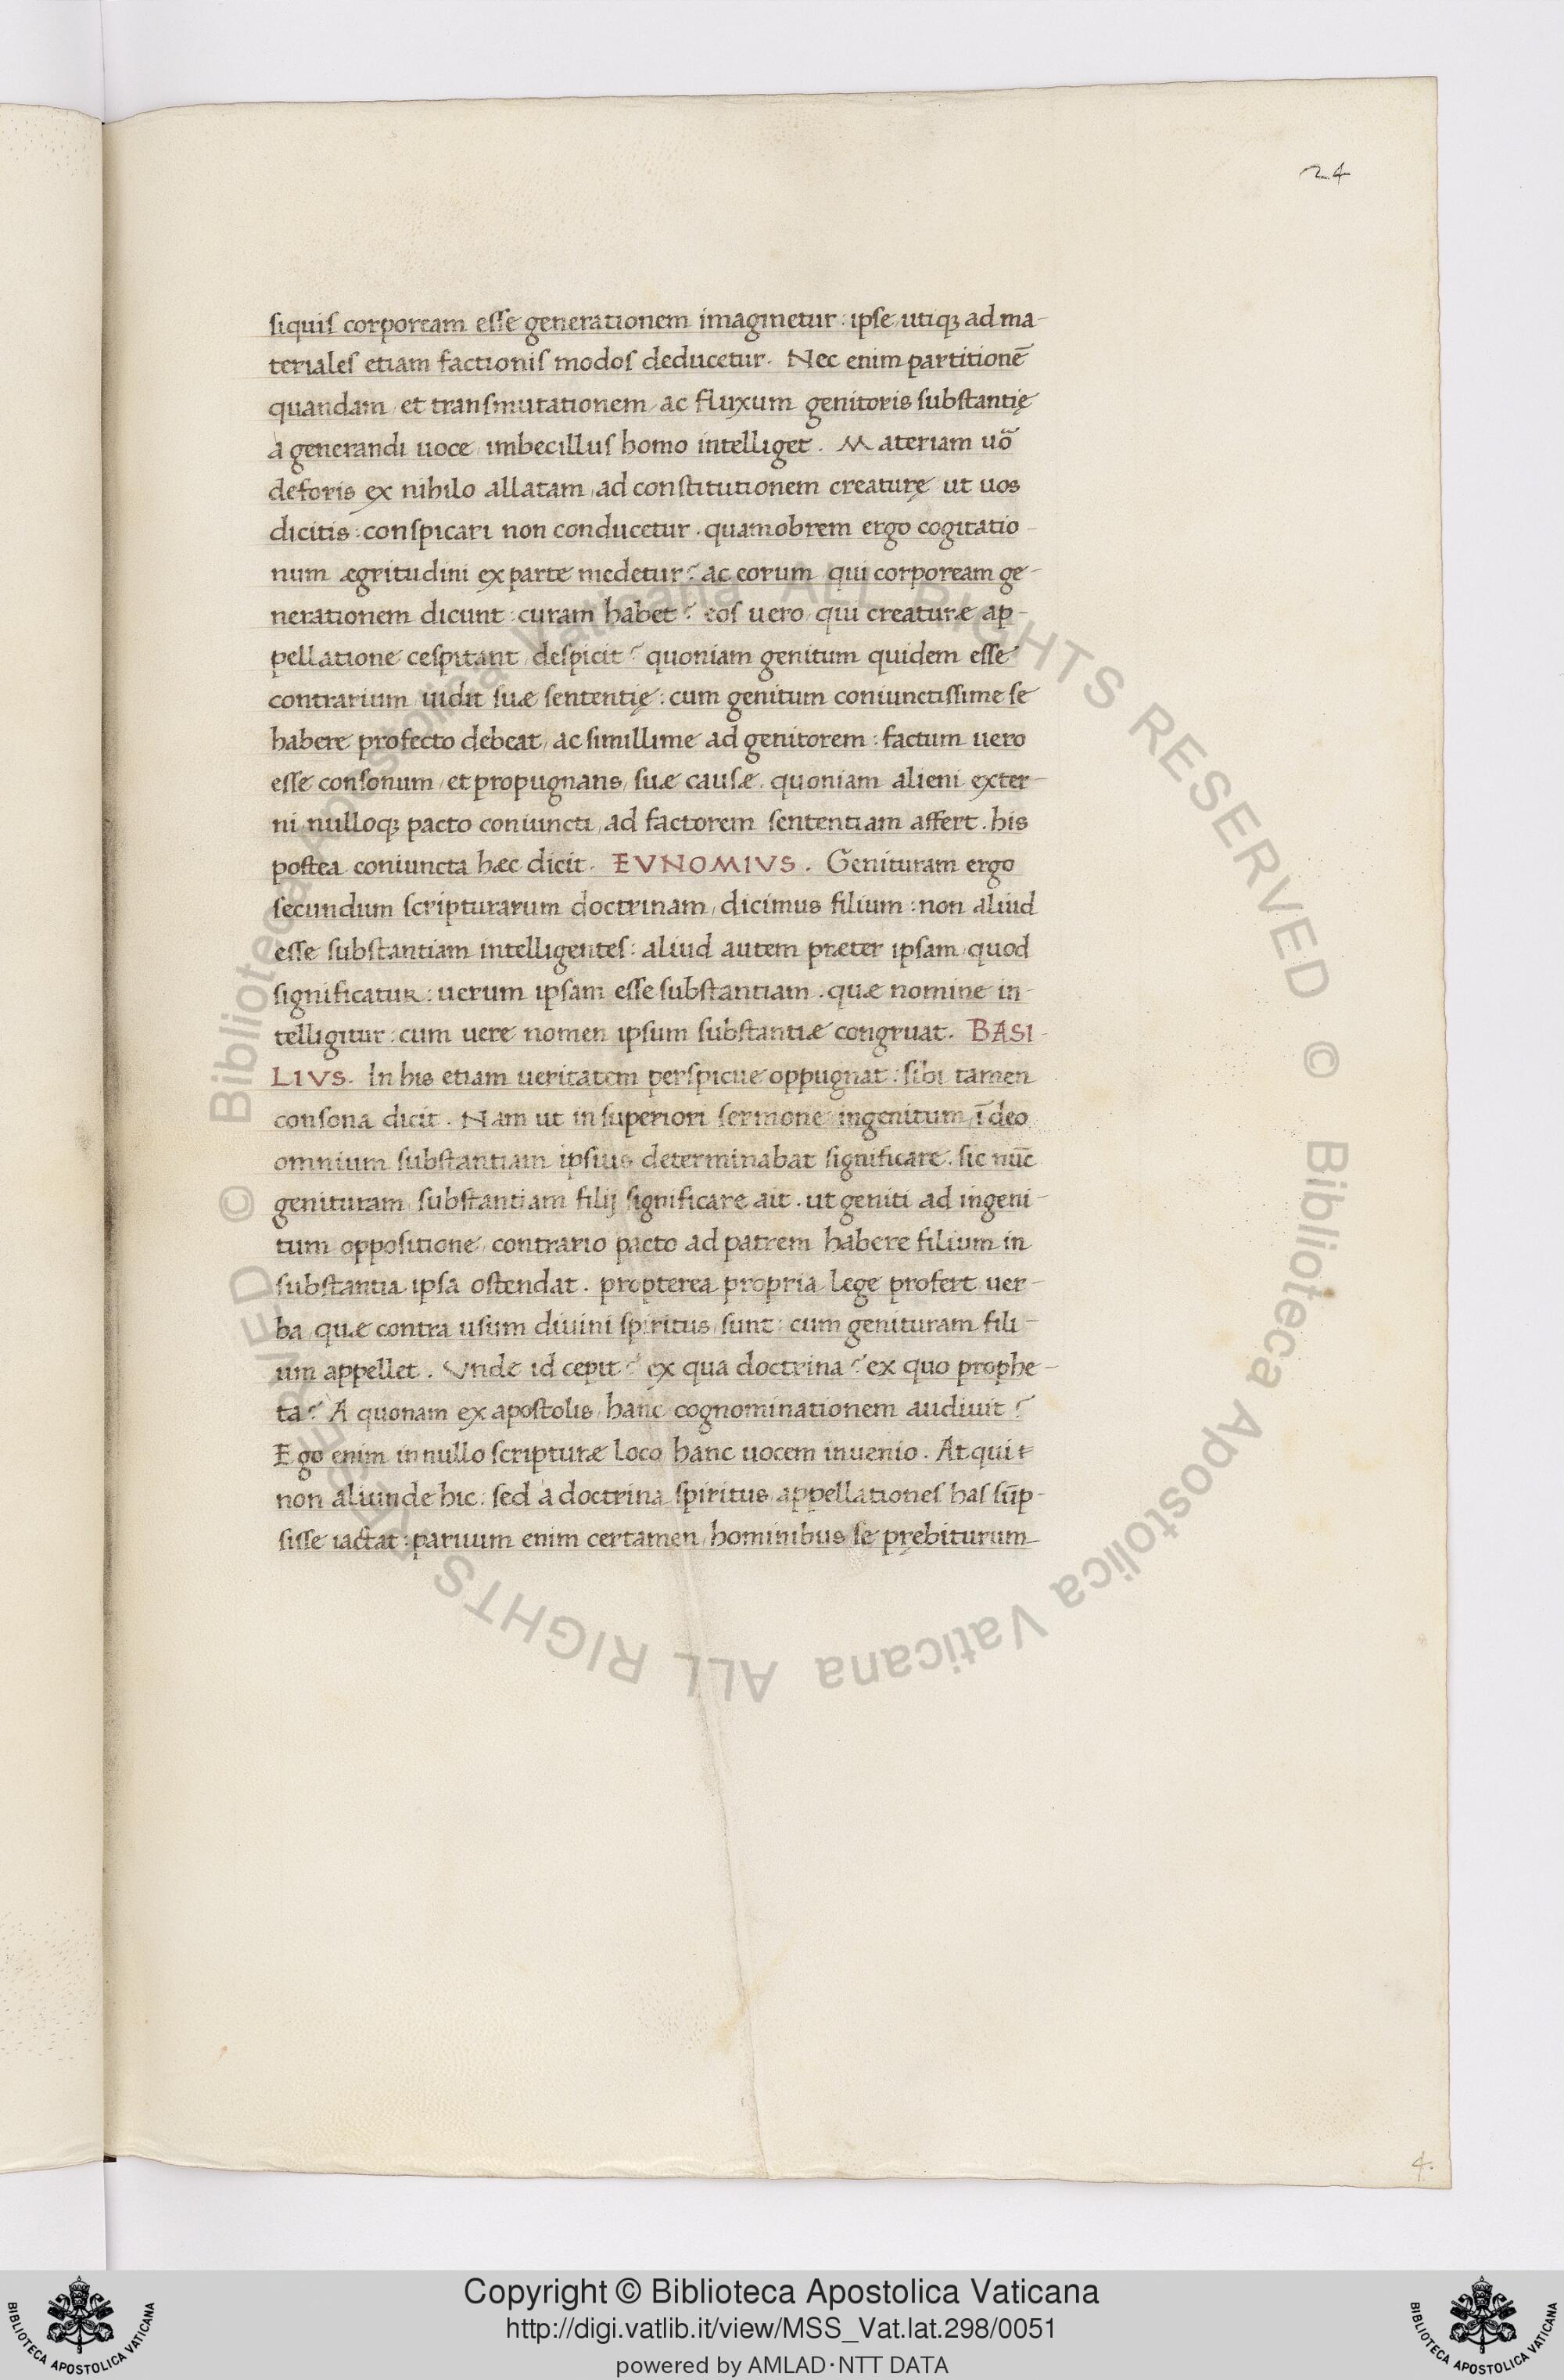 24
siquis corpoream esse generationem imaginetur: ipse, utiq; ad ma-
teriales etiam factionis modos deducetur. Nec enim partitionē
quandam, et transmutationem, ac fluxum genitoris substantię
a generandi uoce, imbecillus homo intelliget. Materiam uō
deforis ex nihilo allatam, ad constitutionem creaturę ut uos
dicitis: conspicari non conducetur. quamobrem ergo cogitatio-
num ægritudini ex parte medetur? ac eorum qui corpoream ge-
nerationem dicunt: curam habet? eos uero, qui creaturæ ap-
pellatione cespitant, despicit? quoniam genitum quidem esse
contrarium uidit suæ sententię: cum genitum coniunctissime se
habere profecto debeat, ac simillime ad genitorem: factum uero
esse consonum, et propugnans, suæ causæ. quoniam alieni exter-
ni nulloq; pacto coniuncti, ad factorem sententiam affert. his
postea coniuncta hæc dicit. EVNOMIVS. Genituram ergo
secundum scripturarum doctrinam, dicimus filium: non aliud
esse substantiam intelligentes: aliud autem præter ipsam, quod
significatur: uerum ipsam esse substantiam. quæ nomine in-
telligitur: cum uere nomen ipsum substantiæ congruat. BASI-
LIVS. In his etiam ueritatem perspicue oppugnat: sibi tamen
consona dicit. Nam ut in superiori sermone ingenitum, ī deo
omnium substantiam ipsius determinabat significare. sic nūc
genituram, substantiam filij significare ait. ut geniti ad ingeni-
tum oppositione, contrario pacto ad patrem habere filium in
substantia ipsa ostendat. propterea propria lege profert uer-
ba, quæ contra usum diuini spiritus, sunt: cum genituram fili-
um appellet. Vnde id cepit? ex qua doctrina? ex quo prophe-
ta? A quonam ex apostolis, hanc cognominationem audiuit?
Ego enim in nullo scripturæ loco hanc uocem inuenio. Atqui
non aliunde hic: sed a doctrina spiritus, appellationes has sūp-
sisse iactat: paruum enim certamen, hominibus se prębiturum
4.
© Biblioteca Apostolica Vaticana ALL RIGHTS RESERVED © Biblioteca Apostolica Vaticana ALL RIGHTS RESERVED
BIBLIOTECA APOSTOLICA VATICANA
Copyright © Biblioteca Apostolica Vaticana
http://digi.vatlib.it/view/MSS_Vat.lat.298/0051
powered by AMLAD·NTT DATA
BIBLIOTECA APOSTOLICA VATICANA